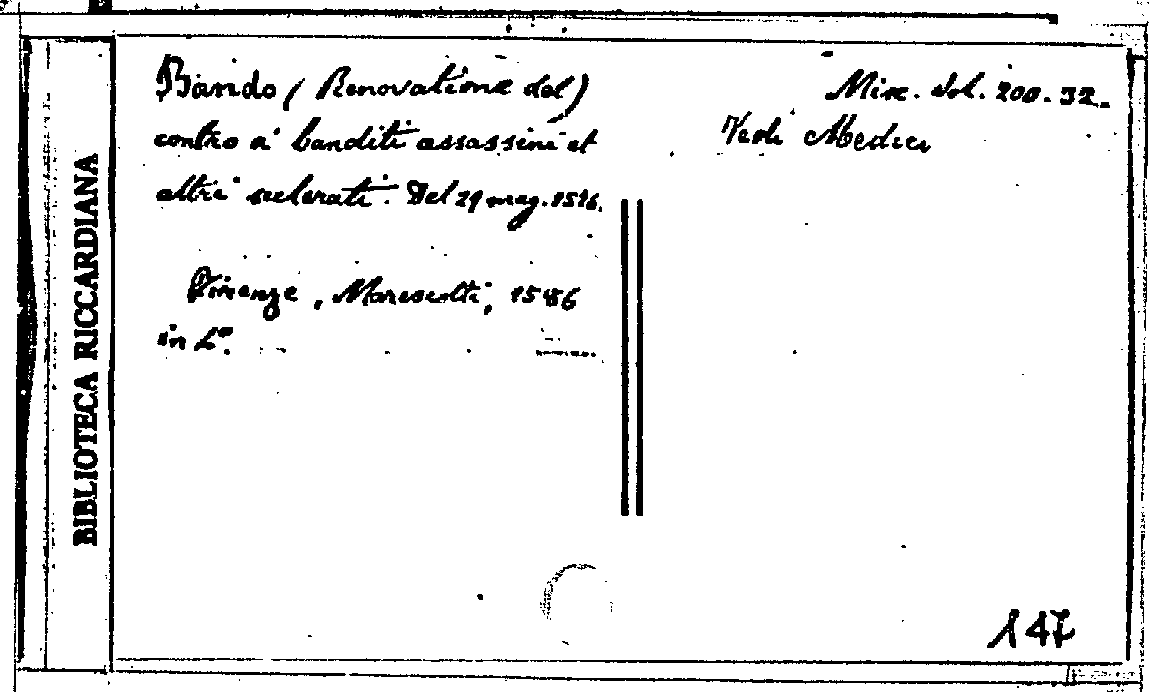 BIBLIOTECA RICCARDIANA
Bando (Renovatione del)
contro a' banditi assassini et
altri scelerati. Del 29 mag. 1586.
Firenze, Marescotti, 1586
in 4°.
Misc. Vol. 200.32.
Vedi Medici
147